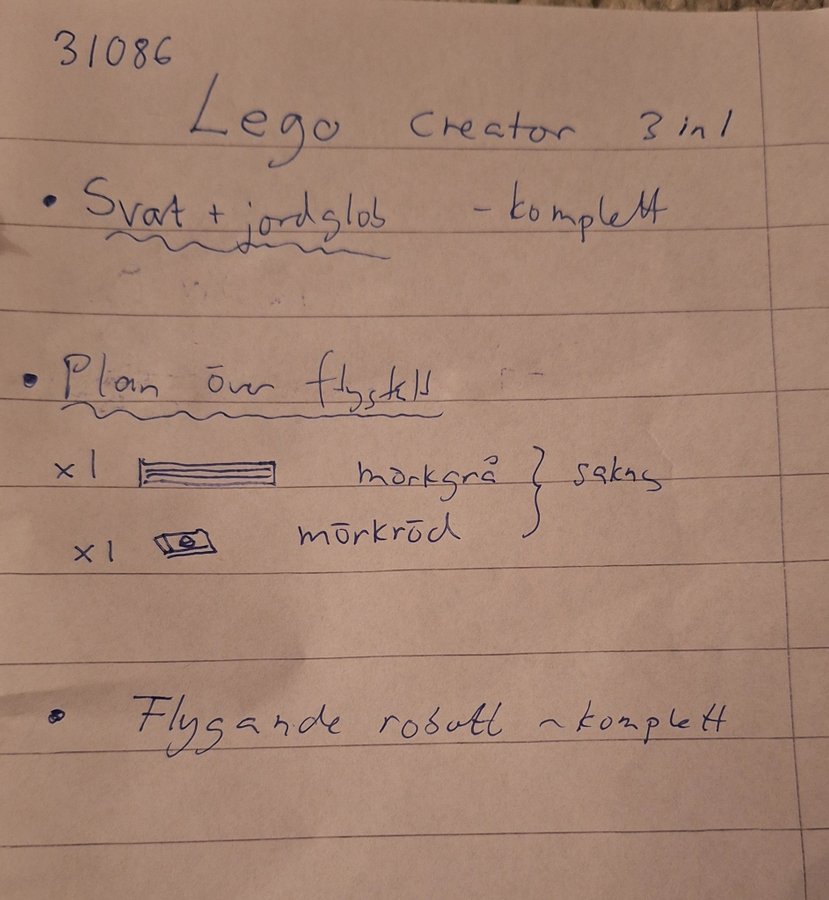 31086
Lego Creator 3 in 1
• Svart + jordglob - komplett
• Plan över flygskll
x1 mörkgrå } saknas
x1 mörkröd
• Flygande robott ~ komplett